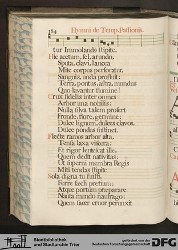 Hymni de Temp. Passionis.
tur Immolandus Stipite.
Hic acetum, fel, arundo,
Sputa, clavi, lancea
Mite corpus perforatur,
Sanguis, unda profluit
Terra, pontus, astra, mundus
Quo lavantur flumine!
Crux fidelis inter omnes
Arbor una nobilis:
Nulla silva talem profert
Fronde, flore, germine:
Dulce lignum, dulces clavos,
Dulce pondus sustinet.
Flecte ramos arbor alta,
Tensa laxa viscera:
Et rigor lentescat ille,
Quem dedit nativitas:
Ut superni membra Regis
Miti tendas stipite
Sola digna tu fuisti
Ferre saecli pretium:
Atque portum praeparare
Nauta mundo naufrago:
Quem sacer cruor perunxit
Stadtbibliothek
und Stadtarchiv Trier
gefördert von der
Deutschen Forschungsgemeinschaft
DFG